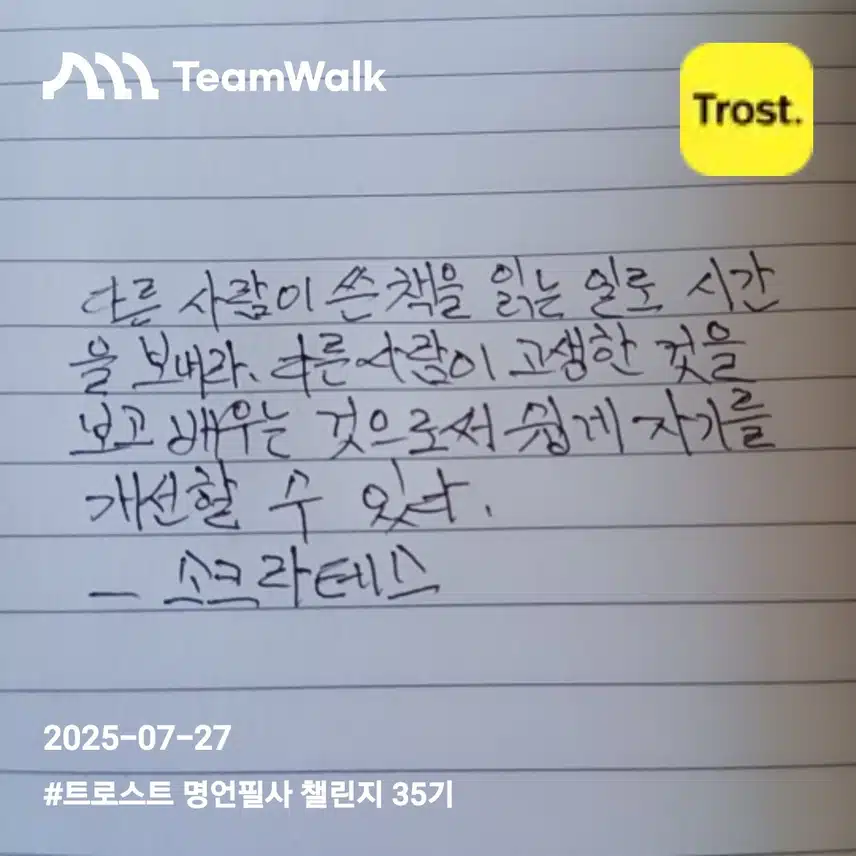 TeamWalk
Trost.
다른 사람이 쓴 책을 읽는 일로 시간
을 보내라. 다른사람이 고생한 것을
보고 배우는 것으로써 쉽게 자기를
개선할 수 있다.
- 소크라테스
2025-07-27
#트로스트 명언필사 챌린지 35기